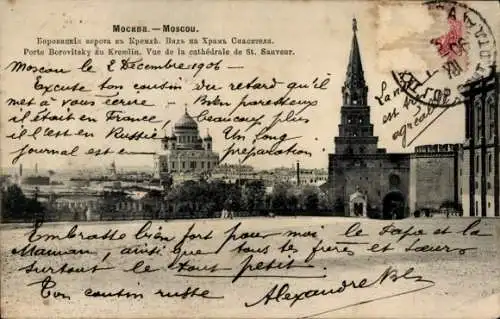 Москва. — Moscou.
Боровицкія ворота въ Кремлѣ. Видъ на Храмъ Спасителя.
Porte Borovitsky du Kremlin. Vue de la cathédrale de St. Sauveur.
Moscou le 2 Decembre 1906
Excuse ton cousin du retard qu'il
met a vous ecrire Bien paresseux
il était en France Beaucoup plus
il l'est en Russie Un long
journal est en préparation
L'an
très
agréable
Embrasse bien fort pour moi le Pape et la
Maman, ainsi que tous les frères et sœurs
surtout le tout petit
Ton cousin russe
Alexandre